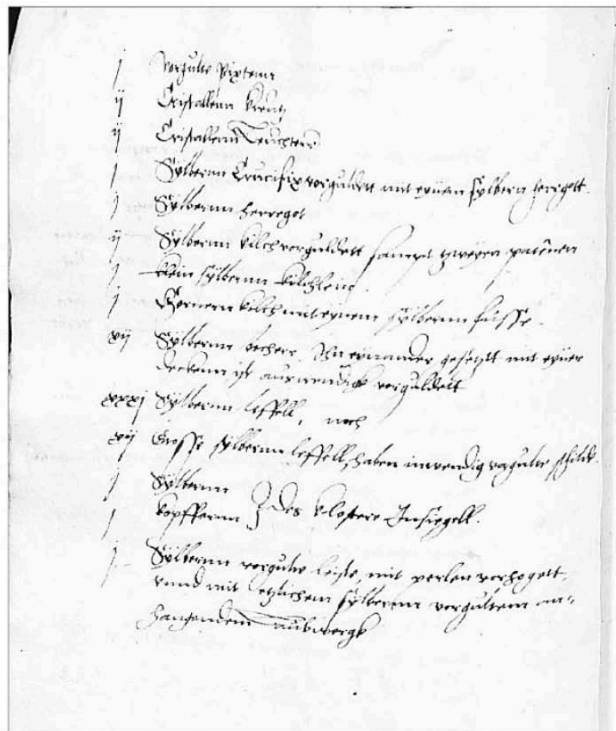 j vorgulte Pixtenn
ij Cristallenn kreutz
ij Cristallenn Leuchtere
j Sylbernn Crucifix vorguldett mit eynen sylbern herrgott.
j Sylbernn herregot
ij Sylbernn kilch vorguldett sampt zweyen patenen
j klein sylbernn kilchlein.
j kilch mit eynem sylbernn fusse.
xij Sylbernn becher, Inn eynander gesetzt mit eyner
deckenn ist auswendigk vorguldett
xxxj Sylbernn leffell, noch
xij Grosse sylbernn leffell, haben inwendig vorgulte schildt.
j Sylbernn
j kopffernn } des klosters Insiegell.
j Sylbernn vorgulte leiste, mit perlen
vnnd mit etzlichem sylbernn vorgultem an=
hangendem